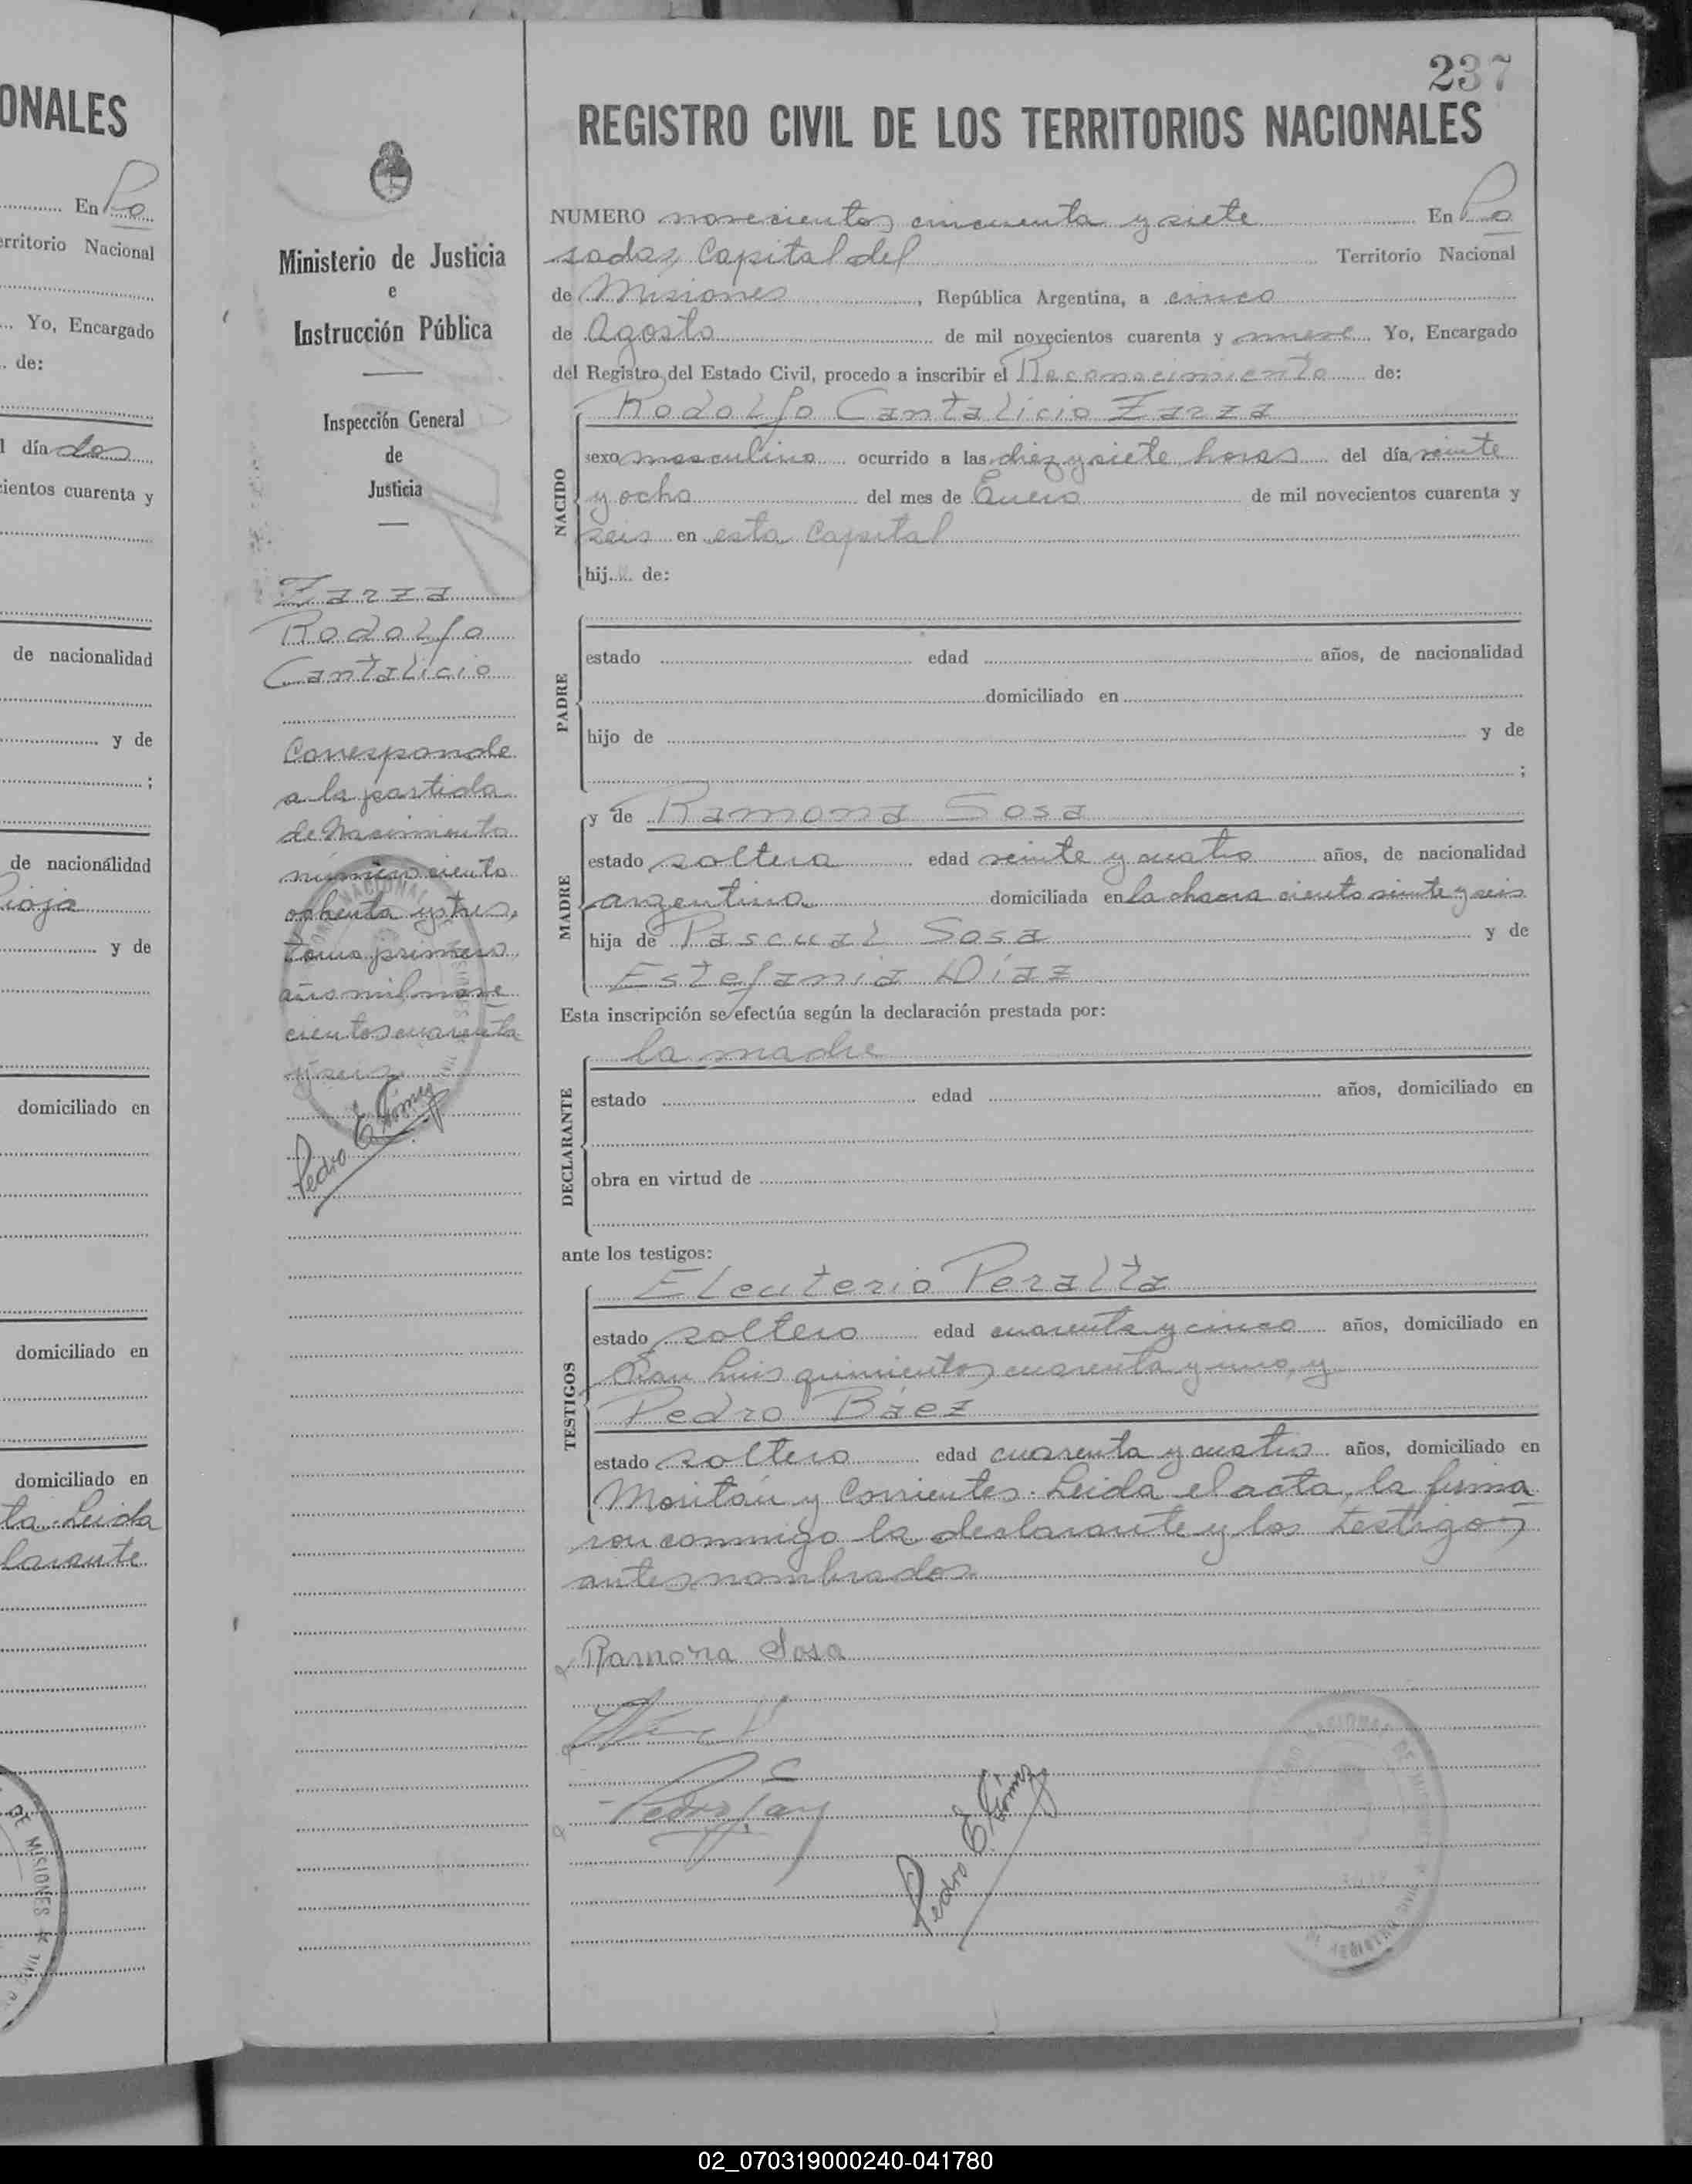 ONALES
En Po
erritorio Nacional
Yo, Encargado
de:
l día dos
ientos cuarenta y
de nacionalidad
y de
;
de nacionalidad
Rioja
y de
domiciliado en
domiciliado en
domiciliado en
ta. Leida
larante
DE MISIONES
237
REGISTRO CIVIL DE LOS TERRITORIOS NACIONALES
Ministerio de Justicia
e
Instrucción Pública
Inspección General
de
Justicia
Zarza
Rodolfo
Cantalicio
Corresponde
a la partida
de Nacimiento
número ciento
ochenta y tres,
tomo primero
año mil nove
cientos cuarenta
y seis
Pedro E. Gómez
NUMERO novecientos cincuenta y siete En Po
sadas, Capital del Territorio Nacional
de Misiones, República Argentina, a cinco
de Agosto de mil novecientos cuarenta y nueve Yo, Encargado
del Registro del Estado Civil, procedo a inscribir el Reconocimiento de:
NACIDO
Rodolfo Cantalicio Zarza
sexo masculino ocurrido a las diez y siete horas del día veinte
y ocho del mes de Enero de mil novecientos cuarenta y
seis en esta Capital
hij de:
PADRE
estado edad años, de nacionalidad
domiciliado en
hijo de y de
;
MADRE
y de Ramona Sosa
estado soltera edad veinte y cuatro años, de nacionalidad
argentina domiciliada en la chacra ciento veinte y seis
hija de Pascual Sosa y de
Estefania Díaz
Esta inscripción se efectúa según la declaración prestada por:
DECLARANTE
la madre
estado edad años, domiciliado en
obra en virtud de
ante los testigos:
TESTIGOS
Eleuterio Peralta
estado soltero edad cuarenta y cinco años, domiciliado en
San Luis quinientos cuarenta y uno, y
Pedro Báez
estado soltero edad cuarenta y cuatro años, domiciliado en
Moritán y Corrientes. Leida el acta, la firma
ron conmigo la declarante y los testigos
antes nombrados
Ramona Sosa
Pedro E. Gómez
02_070319000240-041780